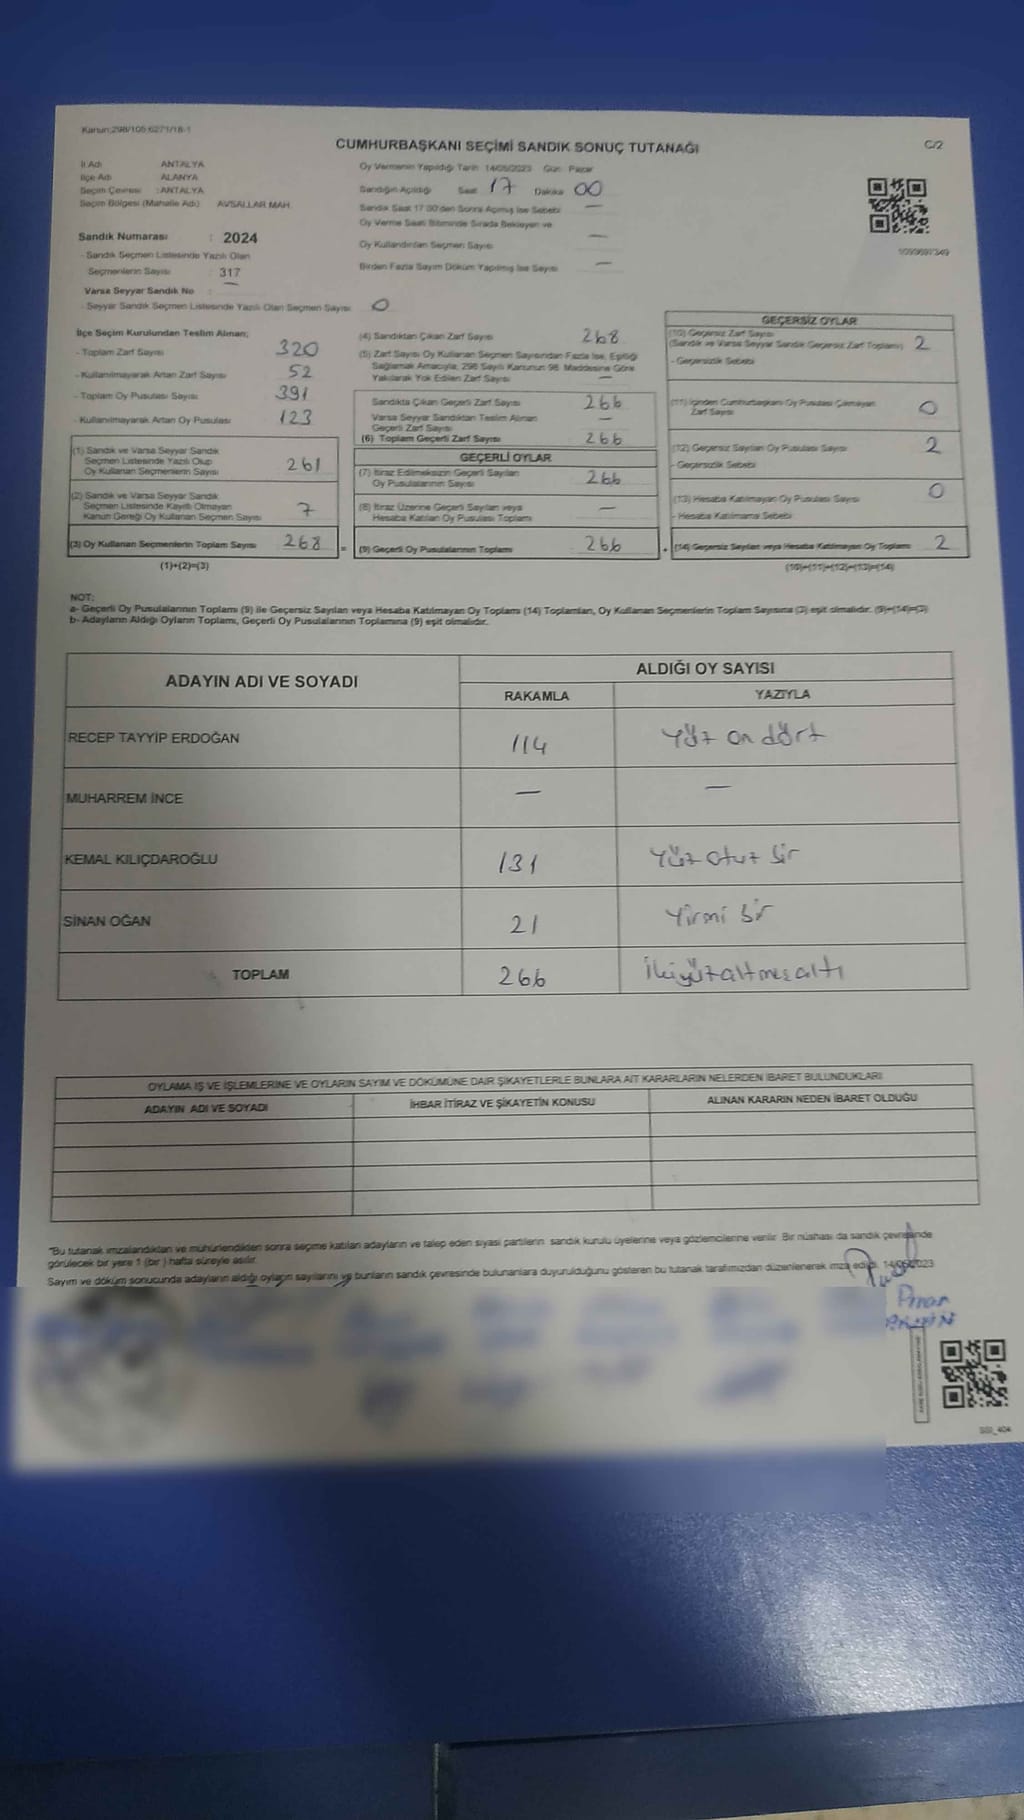 Kanun:298/105;6271/18-1
CUMHURBAŞKANI SEÇİMİ SANDIK SONUÇ TUTANAĞI
C/2
İl Adı ANTALYA
İlçe Adı ALANYA
Seçim Çevresi : ANTALYA
Seçim Bölgesi (Mahalle Adı) AVSALLAR MAH.
Oy Vermenin Yapıldığı Tarih 14/05/2023 Gün: Pazar
Sandığın Açıldığı Saat 17 Dakika 00
Sandık Saat 17.00'den Sonra Açılmış İse Sebebi —
Oy Verme Saati Bitiminde Sırada Bekleyen ve
Oy Kullandırılan Seçmen Sayısı —
Birden Fazla Sayım Döküm Yapılmış İse Sayısı —
Sandık Numarası : 2024
- Sandık Seçmen Listesinde Yazılı Olan
Seçmenlerin Sayısı : 317
Varsa Seyyar Sandık No —
- Seyyar Sandık Seçmen Listesinde Yazılı Olan Seçmen Sayısı 0
İlçe Seçim Kurulundan Teslim Alınan;
- Toplam Zarf Sayısı 320
- Kullanılmayarak Artan Zarf Sayısı 52
- Toplam Oy Pusulası Sayısı 391
- Kullanılmayarak Artan Oy Pusulası 123
(1) Sandık ve Varsa Seyyar Sandık
Seçmen Listesinde Yazılı Olup
Oy Kullanan Seçmenlerin Sayısı 261
(2) Sandık ve Varsa Seyyar Sandık
Seçmen Listesinde Kayıtlı Olmayan
Kanun Gereği Oy Kullanan Seçmen Sayısı 7
(3) Oy Kullanan Seçmenlerin Toplam Sayısı 268
(1)+(2)=(3)
(4) Sandıktan Çıkan Zarf Sayısı 268
(5) Zarf Sayısı Oy Kullanan Seçmen Sayısından Fazla İse, Eşitliği
Sağlamak Amacıyla, 298 Sayılı Kanunun 98. Maddesine Göre
Yakılarak Yok Edilen Zarf Sayısı —
Sandıkta Çıkan Geçerli Zarf Sayısı 266
Varsa Seyyar Sandıktan Teslim Alınan
Geçerli Zarf Sayısı —
(6) Toplam Geçerli Zarf Sayısı 266
GEÇERLİ OYLAR
(7) İtiraz Edilmeksizin Geçerli Sayılan
Oy Pusulalarının Sayısı 266
(8) İtiraz Üzerine Geçerli Sayılan veya
Hesaba Katılan Oy Pusulası Toplamı —
= (9) Geçerli Oy Pusulalarının Toplamı 266
GEÇERSİZ OYLAR
(10) Geçersiz Zarf Sayısı
(Sandık ve Varsa Seyyar Sandık Geçersiz Zarf Toplamı) 2
- Geçersizlik Sebebi
(11) İçinden Cumhurbaşkanı Oy Pusulası Çıkmayan
Zarf Sayısı 0
(12) Geçersiz Sayılan Oy Pusulası Sayısı 2
- Geçersizlik Sebebi
(13) Hesaba Katılmayan Oy Pusulası Sayısı 0
- Hesaba Katılmama Sebebi
+ (14) Geçersiz Sayılan veya Hesaba Katılmayan Oy Toplamı 2
(10)+(11)+(12)+(13)=(14)
NOT:
a- Geçerli Oy Pusulalarının Toplamı (9) ile Geçersiz Sayılan veya Hesaba Katılmayan Oy Toplamı (14) Toplamları, Oy Kullanan Seçmenlerin Toplam Sayısına (3) eşit olmalıdır. (9)+(14)=(3)
b- Adayların Aldığı Oyların Toplamı, Geçerli Oy Pusulalarının Toplamına (9) eşit olmalıdır.
ADAYIN ADI VE SOYADI
ALDIĞI OY SAYISI
RAKAMLA YAZIYLA
RECEP TAYYİP ERDOĞAN 114 Yüz on dört
MUHARREM İNCE — —
KEMAL KILIÇDAROĞLU 131 Yüz otuz bir
SİNAN OĞAN 21 Yirmi bir
TOPLAM 266 İkiyüzaltmışaltı
OYLAMA İŞ VE İŞLEMLERİNE VE OYLARIN SAYIM VE DÖKÜMÜNE DAİR ŞİKAYETLERLE BUNLARA AİT KARARLARIN NELERDEN İBARET BULUNDUKLARI
ADAYIN ADI VE SOYADI İHBAR İTİRAZ VE ŞİKAYETİN KONUSU ALINAN KARARIN NEDEN İBARET OLDUĞU
"Bu tutanak imzalandıktan ve mühürlendikten sonra seçime katılan adayların ve talep eden siyasi partilerin sandık kurulu üyelerine veya gözlemcilerine verilir. Bir nüshası da sandık çevresinde
görülecek bir yere 1 (bir) hafta süreyle asılır.
Sayım ve döküm sonucunda adayların aldığı oyların sayılarını ve bunların sandık çevresinde bulunanlara duyurulduğunu gösteren bu tutanak tarafımızdan düzenlenerek imza edildi. 14/05/2023
Pınar